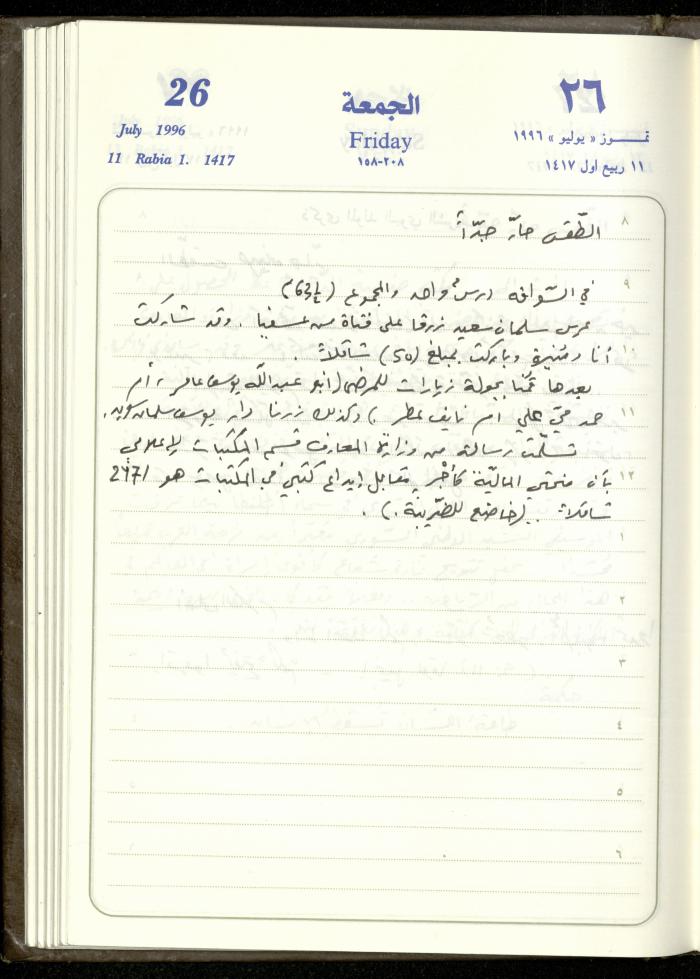 26
July 1996
11 Rabia 1. 1417
الجمعة
Friday
٢٠٨-١٥٨
٢٦
تمـــوز « يوليو » ١٩٩٦
١١ ربيع اول ١٤١٧
٨
الطّقس حارّ جدّاً
٩
في الشوافه درسٌ واحد والمجموع (63½)
عرس سلمان سعيد زرقا على فتاة من عسفيا . وقد شاركت
١٠
أنا ومنيرة وباركت بمبلغ (50) شاقلاً .
بعدها قمنا بجولة زيارات للمرضى (ابو عبدالله يوسف عامر ، أم
١١
حمد محيي علي ام نايف عطر .) وكذلك زرنا دار يوسف سلمان سويد.
تسلّمت رسالة من وزارة المعارف قسم المكتبات للإعلامي
١٢
بأن منحتي الماليّة كأجْرٍ مقابل إيداع كتبي في المكتبات هو 2971
شاقلاً .. (خاضع للضّريبة .) .
١
٢
٣
٤
٥
٦